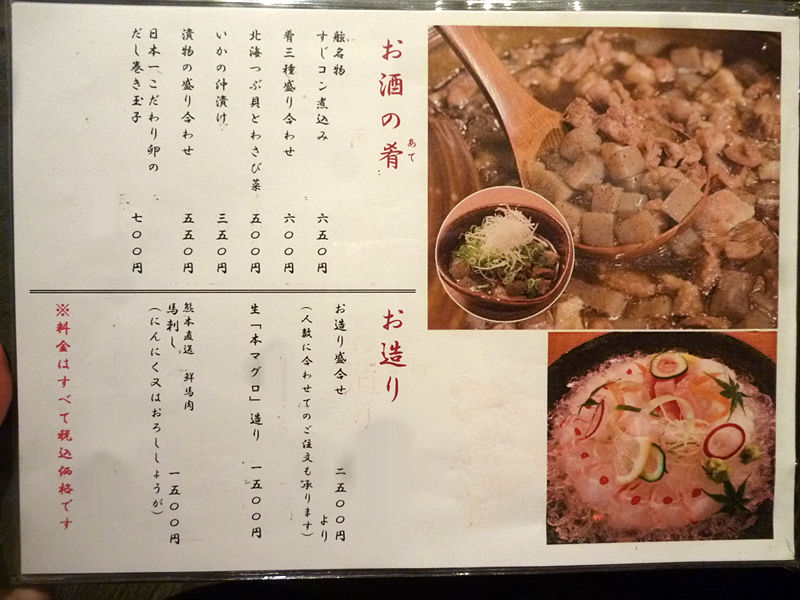 お酒の肴
あて
舷名物
すじコン煮込み 六五〇円
肴三種盛り合わせ 六〇〇円
北海つぶ貝とわさび菜 五〇〇円
いかの沖漬け 三五〇円
漬物の盛り合わせ 五五〇円
日本一こだわり卵の
だし巻き玉子 七〇〇円
お造り
お造り盛合せ 二五〇〇円より
(人数に合わせてのご注文も承ります)
生「本マグロ」造り 一五〇〇円
熊本直送 鮮馬肉
馬刺し 一五〇〇円
(にんにく又はおろししょうが)
※料金はすべて税込価格です